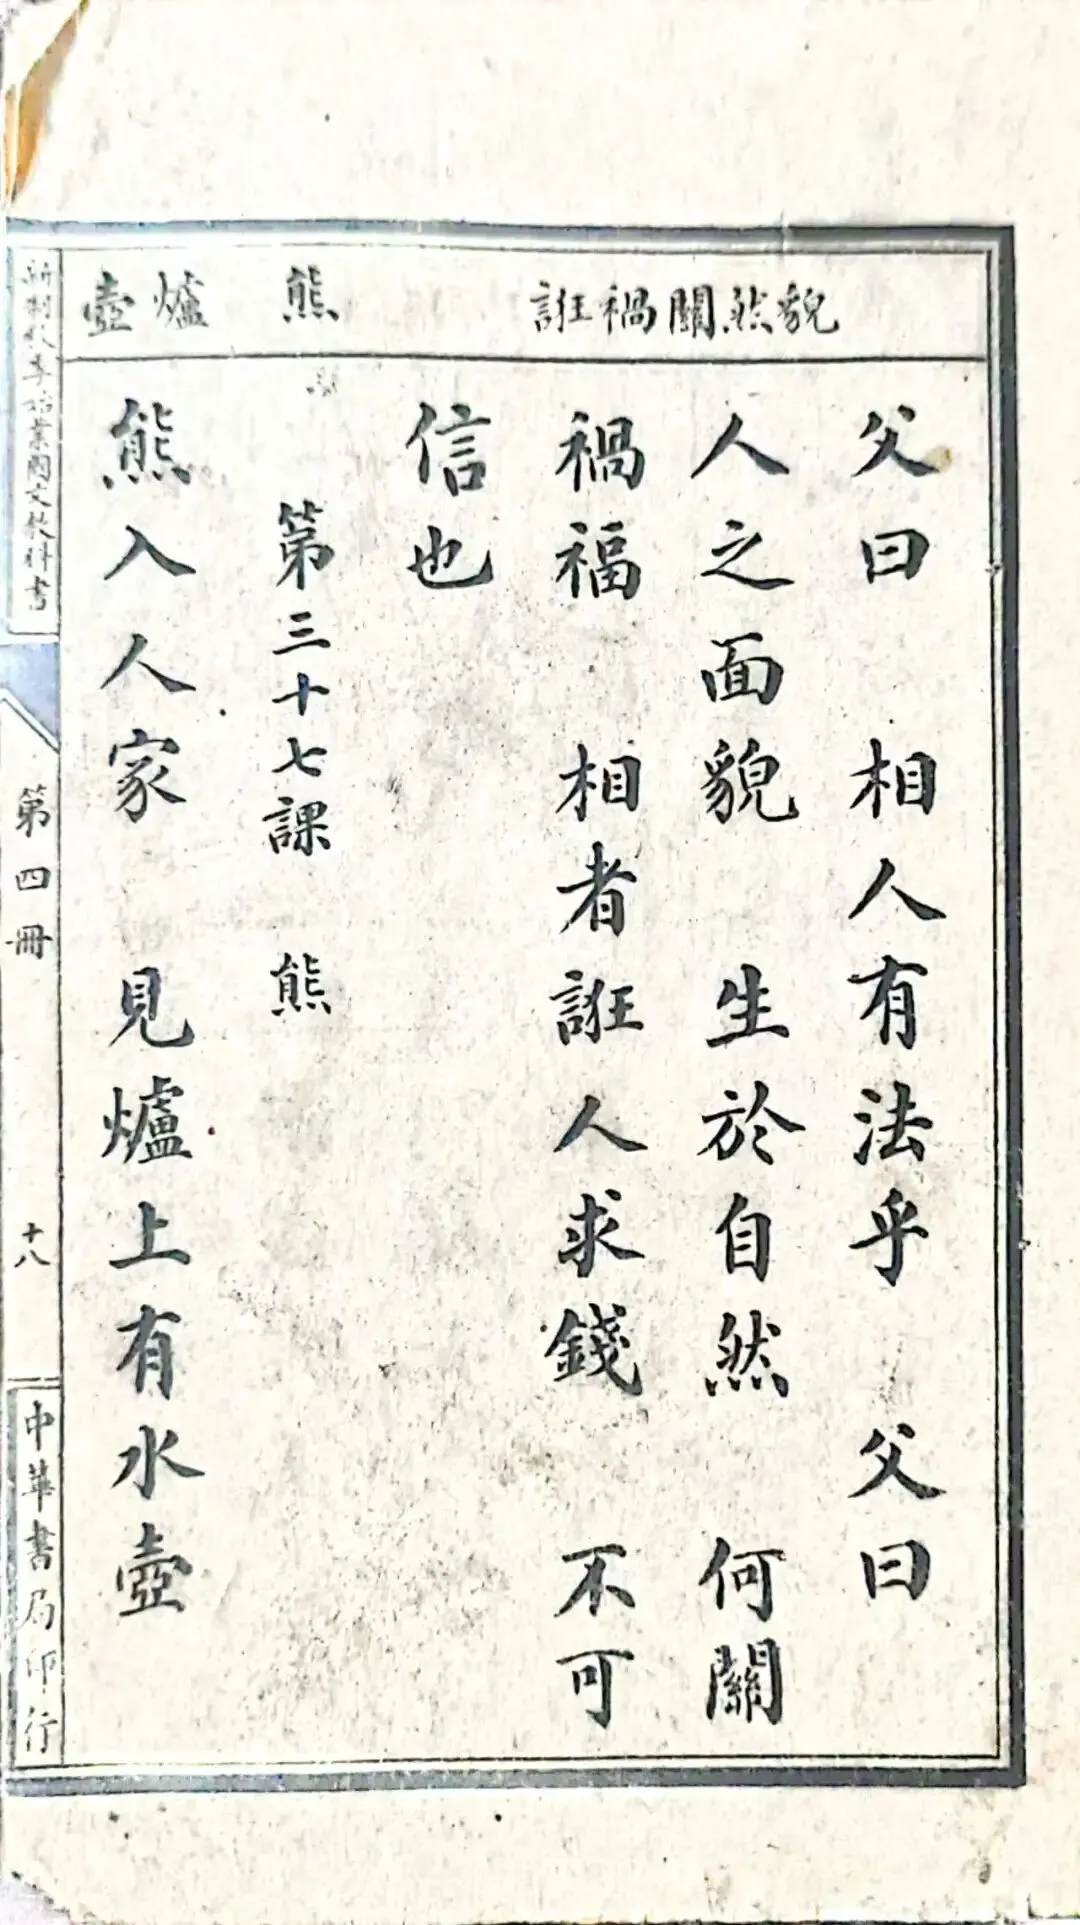 貌然關禍誑
父曰　相人有法乎　父曰
人之面貌　生於自然　何關
禍福　相者誑人求錢　不可
信也
熊
第三十七課　熊
爐壺
熊入人家　見爐上有水壺
新制秋季始業國文教科書
第四冊
十八
中華書局印行